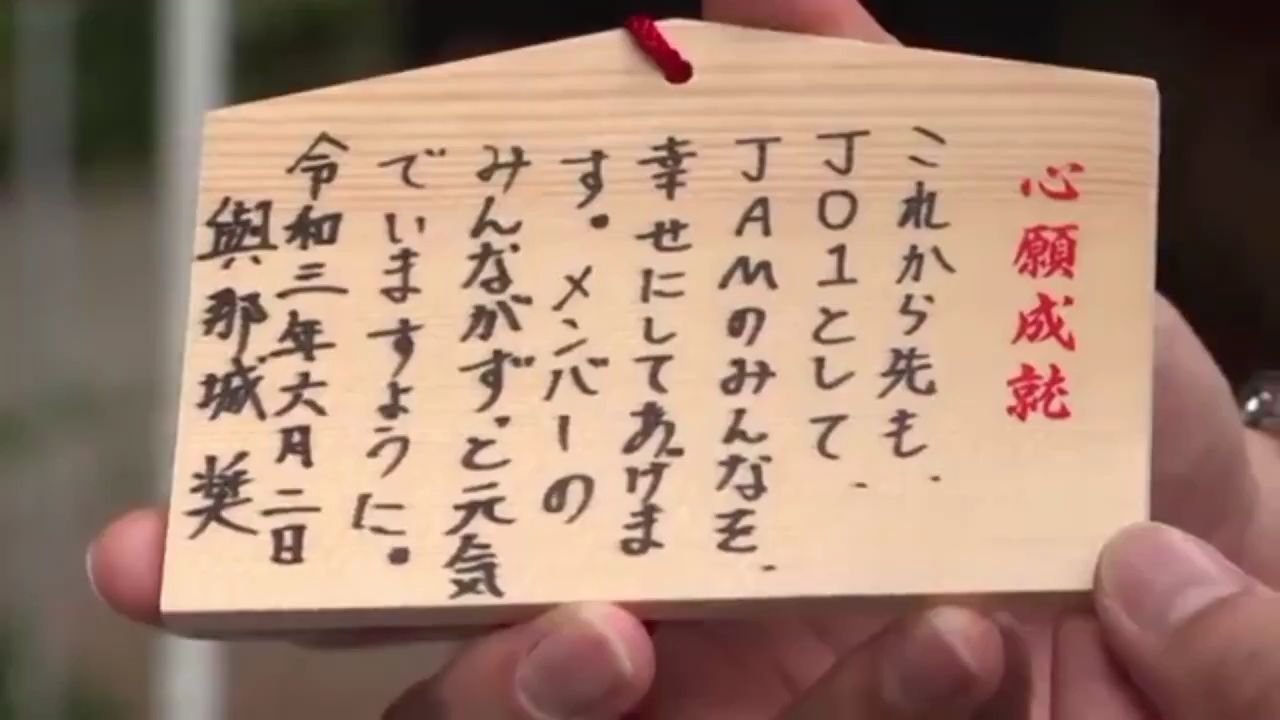 心願成就
これから先も、
JO1として、
JAMのみんなを、
幸せにしてあげま
す。メンバーの
みんながずっと元気
でいますように。
令和三年六月二日
與那城 奨